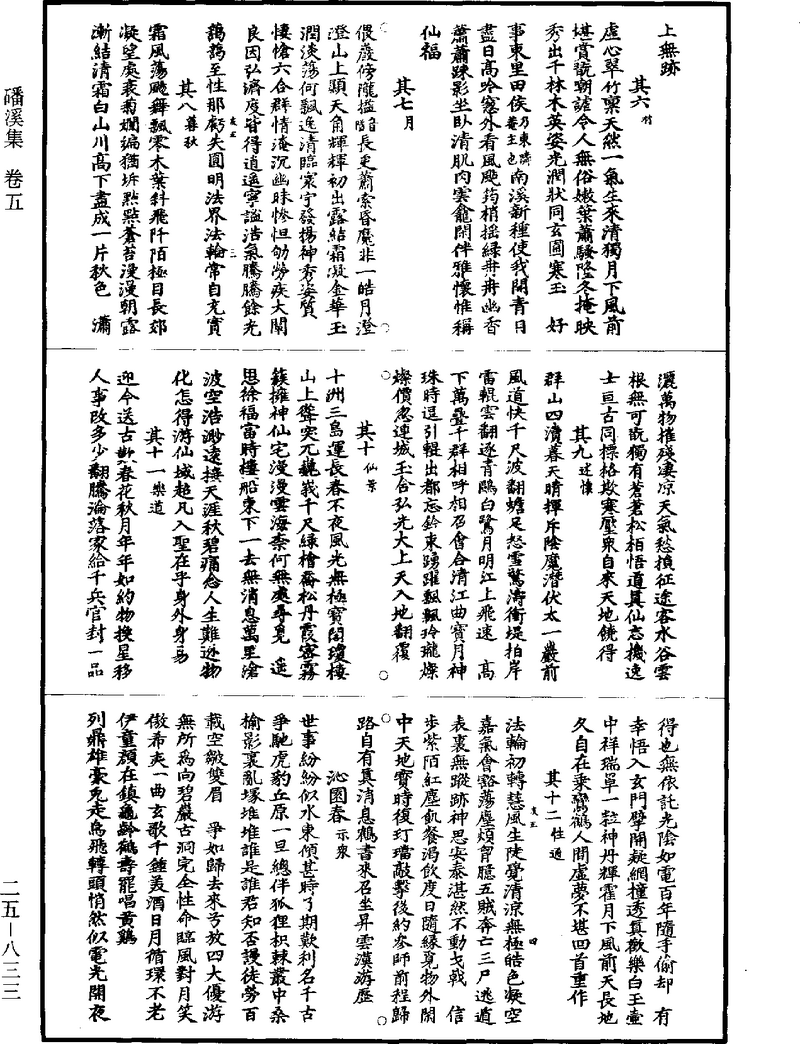 上無跡
其六 竹
虛心翠竹稟天然一氣生來清獨月下風前
堪賞翫嘲謔令人無俗嫩葉蕭騷隆冬掩映
秀出千林木英姿光潤狀同玄圃寒玉　好
事東里田侯乃東濟菴主也南溪新種使我開青目
盡日高吟窻外看風颭筠梢搖綠冉冉幽香
蕭蕭踈影坐臥清肌肉雲龕閑伴雅懷惟稱
仙福
其七 月
偎巖傍隴搵暗長更蕭索昏魔非一皓月澄
澄山上顯天角輝輝初出露結霜凝金華玉
潤淡蕩何飄逸清臨寰宇發揚神秀姿質
悽愴六合羣情淹沉幽昧慘怛劬勞疾大闡
良因弘濟度皆得逍遙寧謐浩氣騰騰餘光
藹藹至性那虧失圓明法界法輪常自充實
其八 暮秋
霜風蕩颺舞飄零木葉斜飛阡陌極目長郊
凝望處衰菊斕斒猶坼點點蒼苔漫漫朝露
漸結清霜白山川高下盡成一片秋色　瀟
灑萬物摧殘淒凉天氣愁損征途客水谷雲
根無可翫獨有蒼蒼松柏悟道真仙忘機逸
士亘古同標格欺寒壓衆自來天地饒得
其九 述懷
群山四瀆暮天晴揮斥陰魔潛伏太一巖前
風道快千尺波翻蟾足怒雪驚濤衝堤拍岸
雷輥雲翻逐青鷗白鷺月明江上飛速　高
下萬疊千群相呼相召會合清江曲寶月神
珠時逗引輥出都忘鈐束踴躍飄飄玲瓏燦
燦價忽連城玉合弘光大上天入地翻覆
其十 仙景
十洲三島運長春不夜風光無極寶閣瓊樓
山上聳突兀巍峩千尺綠檜喬松丹霞密霧
簇擁神仙宅漫漫雲海奈何無處尋覓　遙
思徐福當時樓船東下一去無消息萬里滄
波空浩渺遠接天涯秋碧痛念人生難逃物
化怎得游仙域超凡入聖在乎身外身易
其十一 樂道
迎今送古歎春花秋月年年如約物換星移
人事改多少翻騰淪落家給千兵官封一品
得也無依託光陰如電百年隨手偷却　有
幸悟入玄門擘開疑網撞透真歡樂白玉壺
中祥瑞罩一粒神丹輝霍月下風前天長地
久自在乘鸞鶴人間虛夢不堪回首重作
其十二 性通
法輪初轉慧風生陡覺清涼無極皓色凝空
嘉氣會豁蕩塵煩胷臆五賊奔亡三尸逃遁
表裏無蹤跡神思安泰湛然不動戈戟　信
步紫陌紅塵飢餐渴飲度日隨緣覓物外閑
中天地寶時復玎璫敲擊後約參師前程歸
路自有真消息鶴書來召坐昇雲漢游歷
沁園春 示衆
世事紛紛似水東傾甚時了期歎利名千古
爭馳虎豹丘原一旦總伴狐狸枳棘叢中桑
榆影裏亂塚堆堆誰是誰君知否謾徒勞百
載空皺雙眉　爭如歸去來兮放四大優游
無所為向碧巖古洞完全性命臨風對月笑
傲希夷一曲玄歌千鍾美酒日月循環不老
伊童顏在鎮龜齡鶴壽罷唱黃鷄
列鼎雄豪兎走烏飛轉頭悄然似電光開夜
磻溪集　卷五
二五—八三三